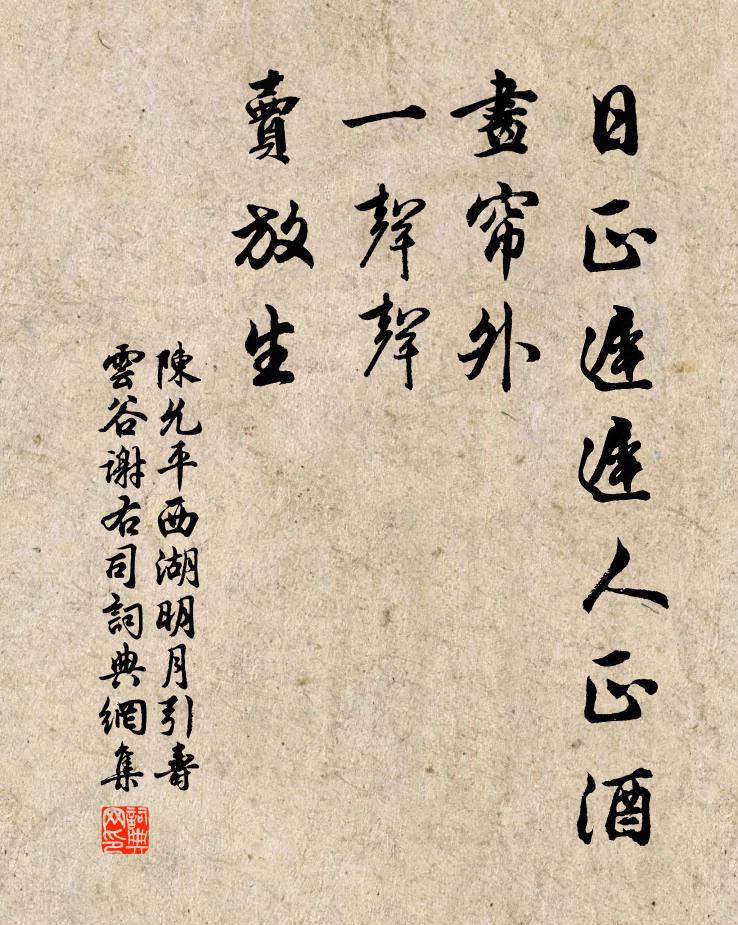 日正遲遲人正酒
畫帘外
一聲聲
賣放生
陳允平西湖明月引壽
雲谷謝右司詞典網集
詞典网印